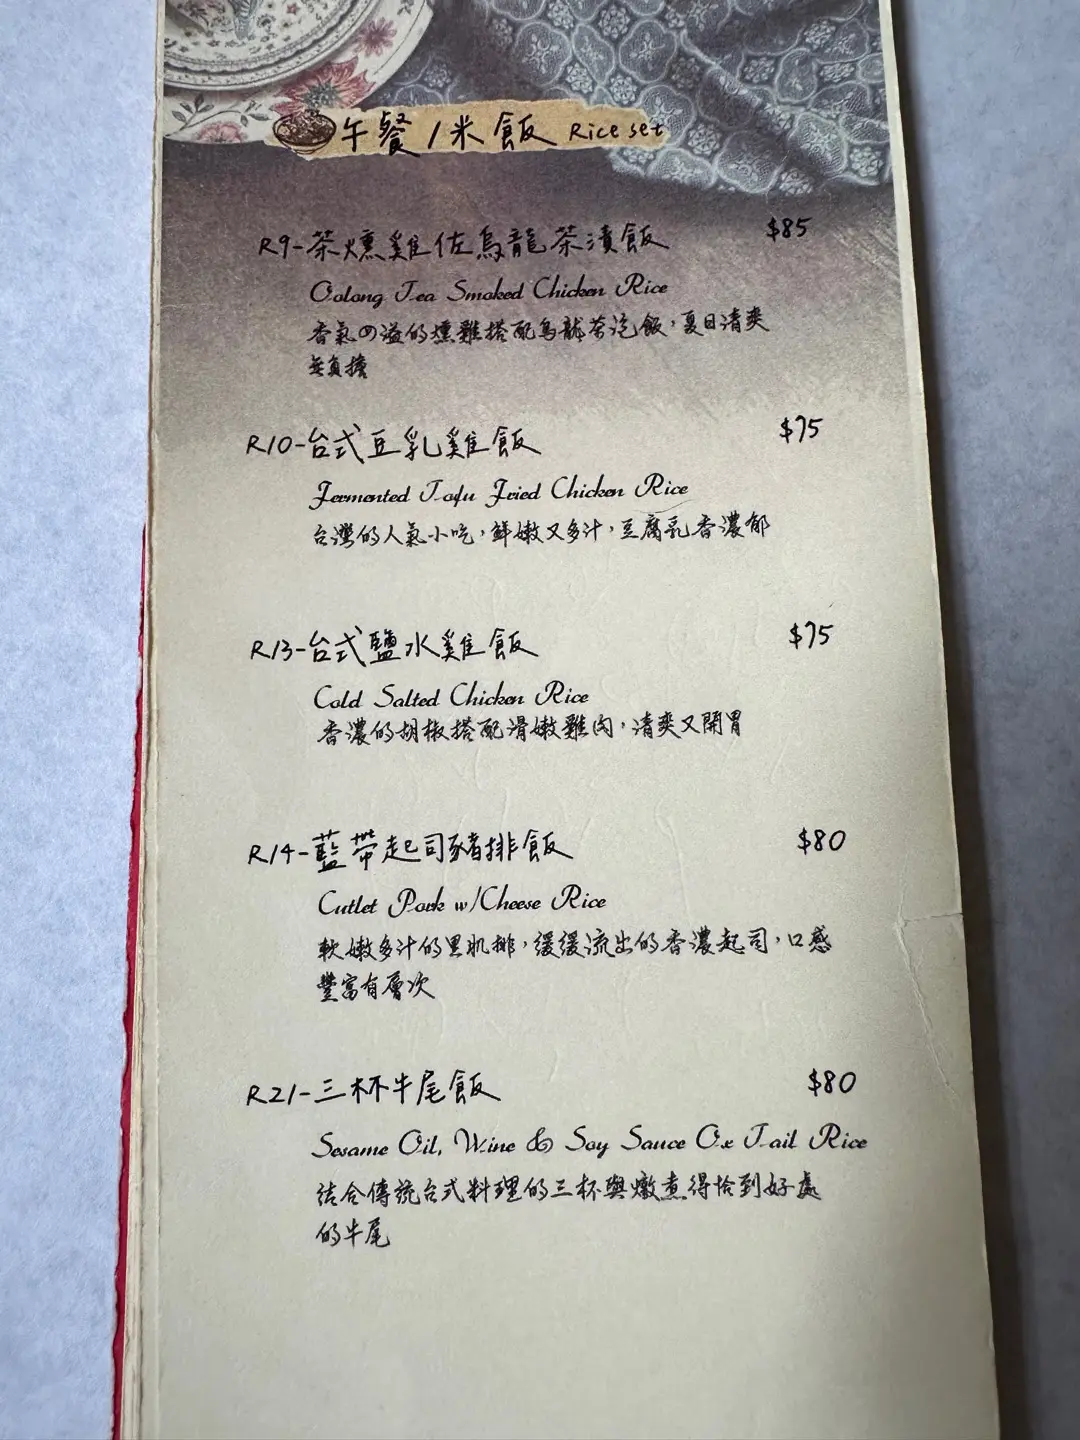 午餐/米飯 Rice set
R9-茶燻雞佐烏龍茶漬飯 $85
Oolong Tea Smoked Chicken Rice
香氣四溢的燻雞搭配烏龍茶泡飯，夏日清爽
無負擔
R10-台式豆乳雞飯 $75
Fermented Tofu Fried Chicken Rice
台灣的人氣小吃，鮮嫩又多汁，豆腐乳香濃郁
R13-台式鹽水雞飯 $75
Cold Salted Chicken Rice
香濃的胡椒搭配滑嫩雞肉，清爽又開胃
R14-藍帶起司豬排飯 $80
Cutlet Pork w/Cheese Rice
軟嫩多汁的里肌排，緩緩流出的香濃起司，口感
豐富有層次
R21-三杯牛尾飯 $80
Sesame Oil, Wine & Soy Sauce Ox Tail Rice
結合傳統台式料理的三杯與燉煮得恰到好處
的牛尾